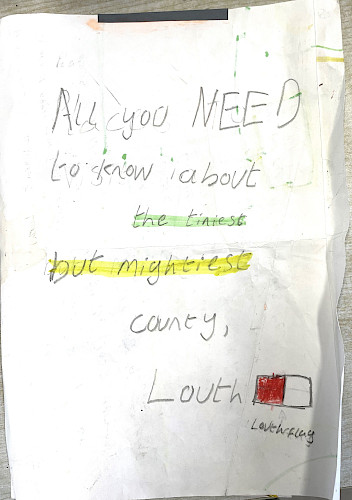 All you NEED
to know about
the tiniest
but mightiest
county,
Louth
Louth flag